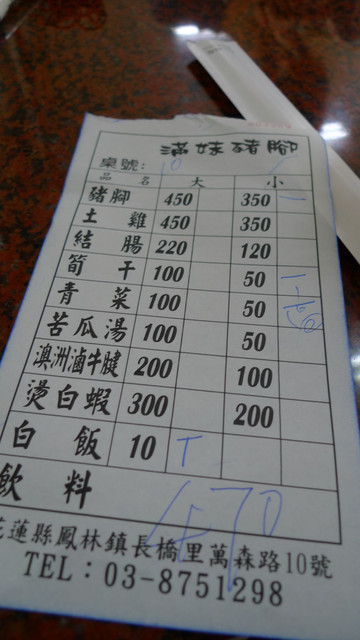 滿妹豬腳
桌號:
品 名 大 小
豬腳 450 350 一
土雞 450 350
結腸 220 120
筍干 100 50
青菜 100 50
苦瓜湯 100 50
澳洲滷牛腱 200 100
燙白蝦 300 200
白飯 10 T
飲料 470
花蓮縣鳳林鎮長橋里萬森路10號
TEL：03-8751298